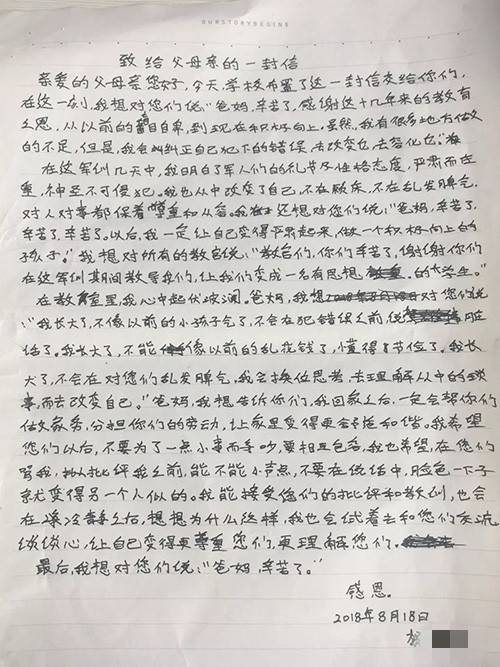 OURSTORYBEGINS
致给父母亲的一封信
亲爱的父母亲您好,今天,学校布置了这一封信交给你们,
在这一刻,我想对您们说:"爸妈,辛苦了,感谢这十几年来的教育
之恩,从以前的自卑,到现在积极向上,虽然,我有很多地方做
的不足,但是,我会纠正自己犯下的错误,去改变它,去
在这军训几天中,我明白了军人们的礼节及性格态度,严肃而庄
重,神圣不可侵犯。我也从中改变了自己,不在颓废,不在乱发脾气,
对人对事都保着尊重和从容。我还想对您们说:"爸妈,辛苦了,
辛苦了,辛苦了。以后,我一定让自己变得严肃起来,做一个积极向上的
孩子。"我想对所有的教官说:"教官们,你们辛苦了,谢谢你们
在这军训期间教导我们,让我们变成一名有思想的大学生。"
在教室里,我心中起伏波澜。爸妈,我想对您们说
:"我长大了,不像以前的小孩子气了,不会在犯错误之前说脏
话了。我长大了,不能像以前的乱花钱了,懂得了节俭了。我长
大了,不会在对您们乱发脾气,我会换位思考,去理解从中的琐
事,而去改变自己。"爸妈,我想告诉你们,我回家之后,一定会帮你们
做家务,分担你们的劳动,让家里变得更和谐。我希望
您们以后,不要为了一点小事而争吵,要相互包容,我也希望,在您们
骂我,批评我之前,能不能小节点,不要在说话中,脸色一下子
就变得另一个人似的。我能接受您们的批评和教训,也会
在冷静之后,想想为什么这样,我也会试着去和您们交流
谈谈心,让自己变得更尊重您们,更理解您们。
最后,我想对您们说:"爸妈,辛苦了。"
感恩。
2018年8月18日